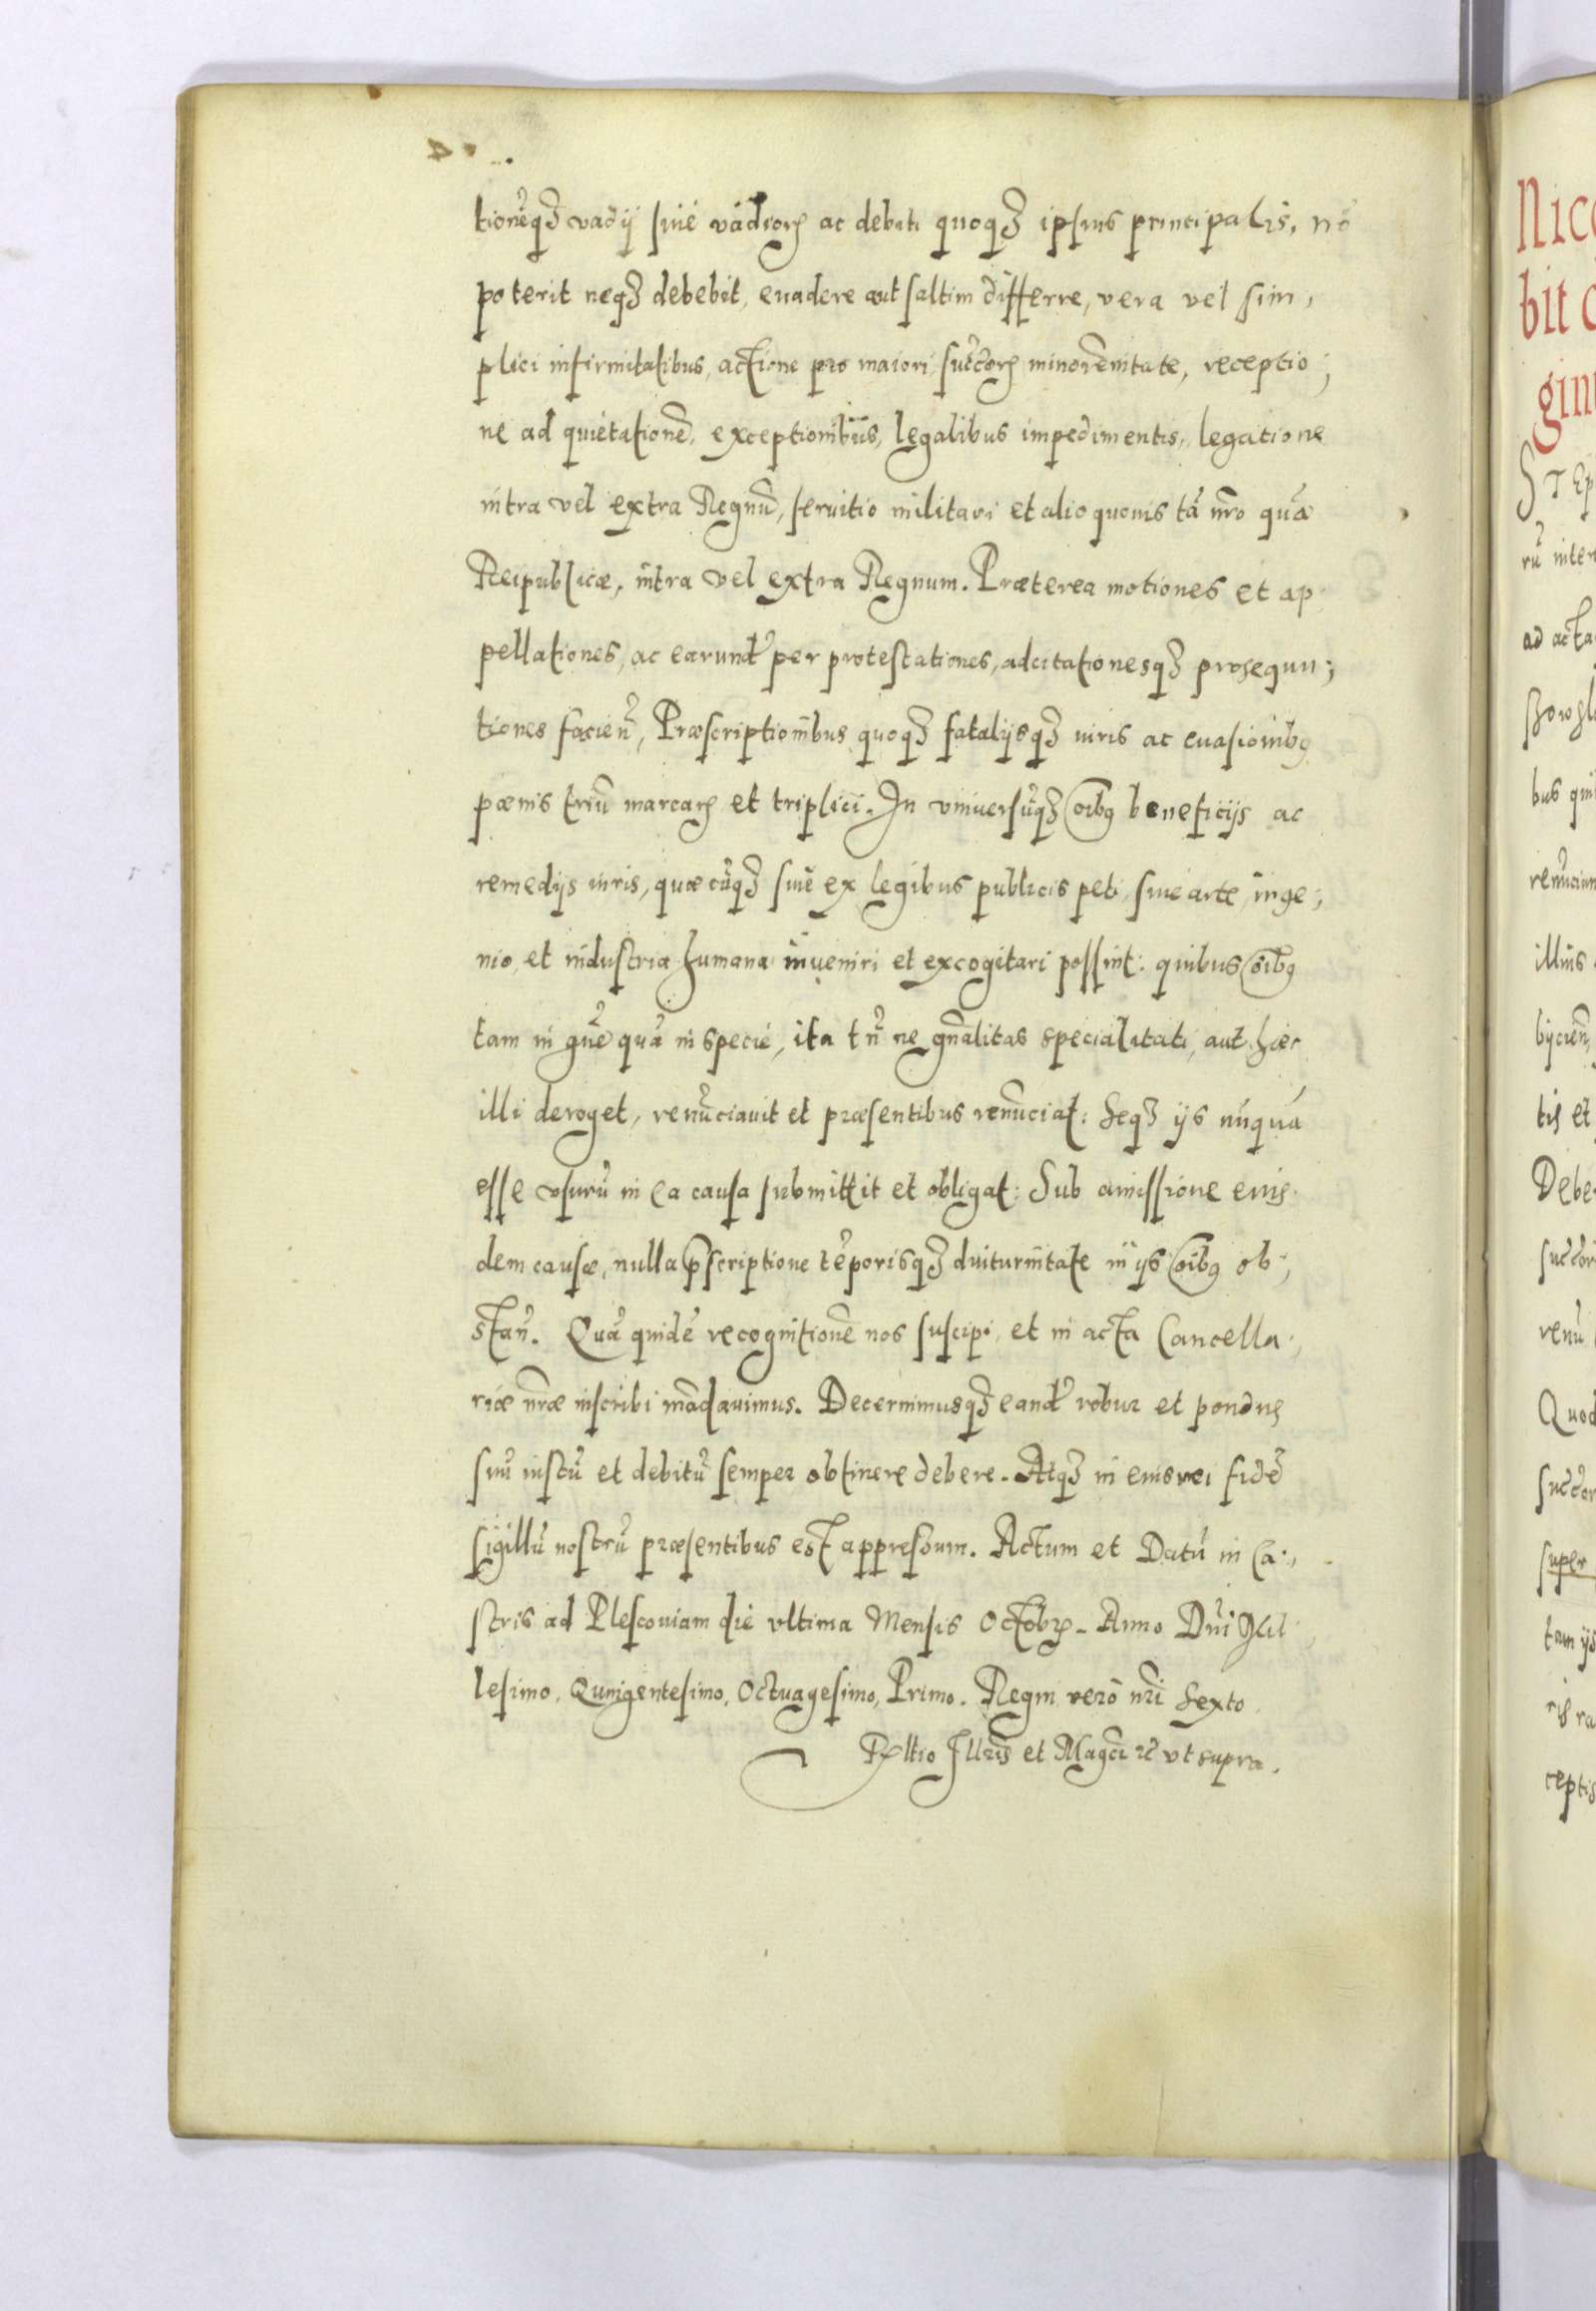 tionẽqȝ vadij siué vadiorꝝ ac debiti quoqȝ ipsius principalis, nõ
poterit neqȝ debebit, euadere aut saltim differre, vera vel sim,
plici infirmitatibus, actione pro maiori, succorꝝ minorẽnitate, receptio;
ne ad quietationẽ, exceptionibus, legalibus impedimentis, legatione
intra vel extra Regnũ, seruitio militari et alio quouis tã nr̃o quã
Reipublicæ, intra vel extra Regnum. Præterea motiones et ap
pellationes, ac earund̃ per protestationes, adcitationesqȝ prosequu;
tiones facień, Præscriptionibus quoqȝ fatalijsqȝ iuris ac euasionibꝯ
pœnis triũ marcarꝝ et triplici. In vniuersũqȝ oĩbꝯ beneficijs ac
remedijs iuris, quæcũqȝ siue ex legibus publicis peti, siue arte, inge;
nio, et industria humana inueniri et excogitari possint: quibus oĩbꝯ
tam in gñe quã in specie, ita tñ ne gñalitas specialitati, aut hæc
illi deroget, renũciauit et præsentibus renũciat: Seqȝ ijs nũquã
esse vsurũ in ea causa submittit et obligat: Sub amissione eius
dem causæ, nulla p̃scriptione tẽporisqȝ diuturnitate in ijs oĩbꝯ ob;
stañ. Quã quidẽ recognitionẽ nos suscipi, et in acta Cancella,
riæ nr̃æ inscribi mãdauimus. Decernimusqȝ eand̃ robur et pondus
suũ iustũ et debitũ semper obtinere debere. Atqȝ in eius rei fidẽ
sigillũ nostrũ præsentibus est appressum. Actum et Datũ in Ca,
stris ad Plescouiam die vltima Mensis Octobrꝭ. Anno Dñi Mil
lesimo, Quingentesimo, Octuagesimo, Primo. Regni verò nr̃i Sexto
Rltio Jllr̃is et Magci ꝛc̃ vt supra.
Nico
bit
gin
STEp
rũ inter
ad acta
bus qui
illius
bijcień
tis et
Debe
succor
renũ
Quod
succor
super
tam ijs
ris ra
ceptis